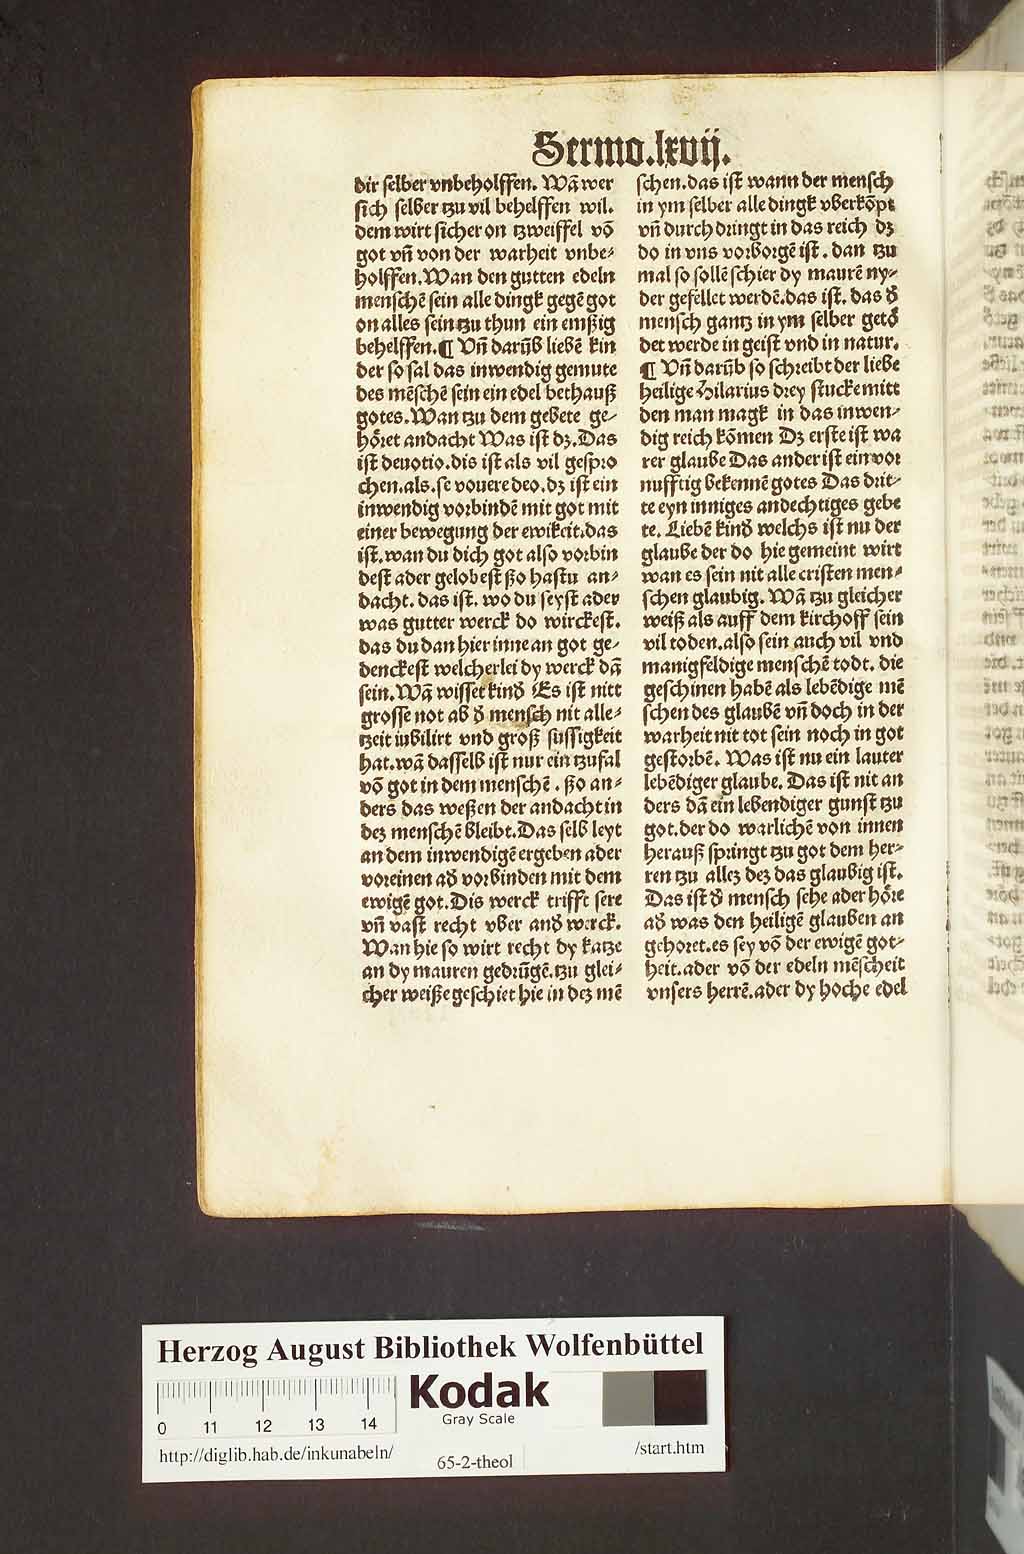 Sermo.lxvij.
dir selber vnbeholffen. Wā wer
sich selber tzu vil behelffen wil.
dem wirt sicher on tzweiffel vō
got vñ von der warheit vnbe-
holffen. Wan den gutten edeln
menschē sein alle dingk gegē got
on alles sein tzu thun ein emßig
behelffen. ¶ Vñ darūb liebē kin
der so sal das inwendig gemute
des mēschē sein ein edel bethauß
gotes. Wan tzu dem gebete ge-
hōret andacht Was ist dz. Das
ist deuotio. dis ist als vil gespro
chen. als. se vouere deo. dz ist ein
inwendig vorbindē mit got mit
einer bewegung der ewikeit. das
ist. wan du dich got also vorbin
dest ader gelobest ßo hastu an-
dacht. das ist. wo du seyst ader
was gutter werck do wirckest.
das du dan hier inne an got ge-
denckest welcherlei dy werck dā
sein. Wā wisset kinđ Es ist nitt
grosse not ab đ mensch nit alle-
tzeit iubilirt vnd groß sussigkeit
hat. wā dasselb ist nur ein tzufal
vō got in dem menschē. ßo an-
ders das weßen der andacht in
dez menschē bleibt. Das selb leyt
an dem inwendigē ergeben ader
voreinen ađ vorbinden mit dem
ewigē got. Dis werck trifft sere
vñ vast recht vber anđ werck.
Wan hie so wirt recht dy katze
an dy mauren gedrūgē. tzu glei-
cher weiße geschiet hie in dez mē
schen. das ist wann der mensch
in ym selber alle dingk vberkōpt
vñ durch dringt in das reich dz
do in vns vorborgē ist. dan tzu
mal so sollē schier dy maurē ny-
der gefellet werdē. das ist. das đ
mensch gantz in ym selber getō
det werde in geist vnd in natur.
¶ Vñ darūb so schreibt der liebe
heilige Hilarius drey stucke mitt
den man magk in das inwen-
dig reich kōmen Dz erste ist wa
rer glaube Das ander ist ein vor
nufftig bekennē gotes Das drit-
te eyn inniges andechtiges gebe
te. Liebē kinđ welchs ist nu der
glaube der do hie gemeint wirt
wan es sein nit alle cristen men-
schen glaubig. Wā tzu gleicher
weiß als auff dem kirchoff sein
vil toden. also sein auch vil vnd
manigfeldige menschē todt. die
geschinen habē als lebēdige mē
schen des glaubē vñ doch in der
warheit nit tot sein noch in got
gestorbē. Was ist nu ein lauter
lebēdiger glaube. Das ist nit an
ders dā ein lebendiger gunst tzu
got. der do warlichē von innen
herauß springt tzu got dem her-
ren tzu allez dez das glaubig ist.
Das ist đ mensch sehe ader hōre
ađ was den heiligē glauben an
gehoret. es sey vō der ewigē got-
heit. ader vō der edeln mēscheit
vnsers herrē. ader dy hoche edel
Herzog August Bibliothek Wolfenbüttel
Kodak
Gray Scale
0 11 12 13 14
http://diglib.hab.de/inkunabeln/
65-2-theol
/start.htm